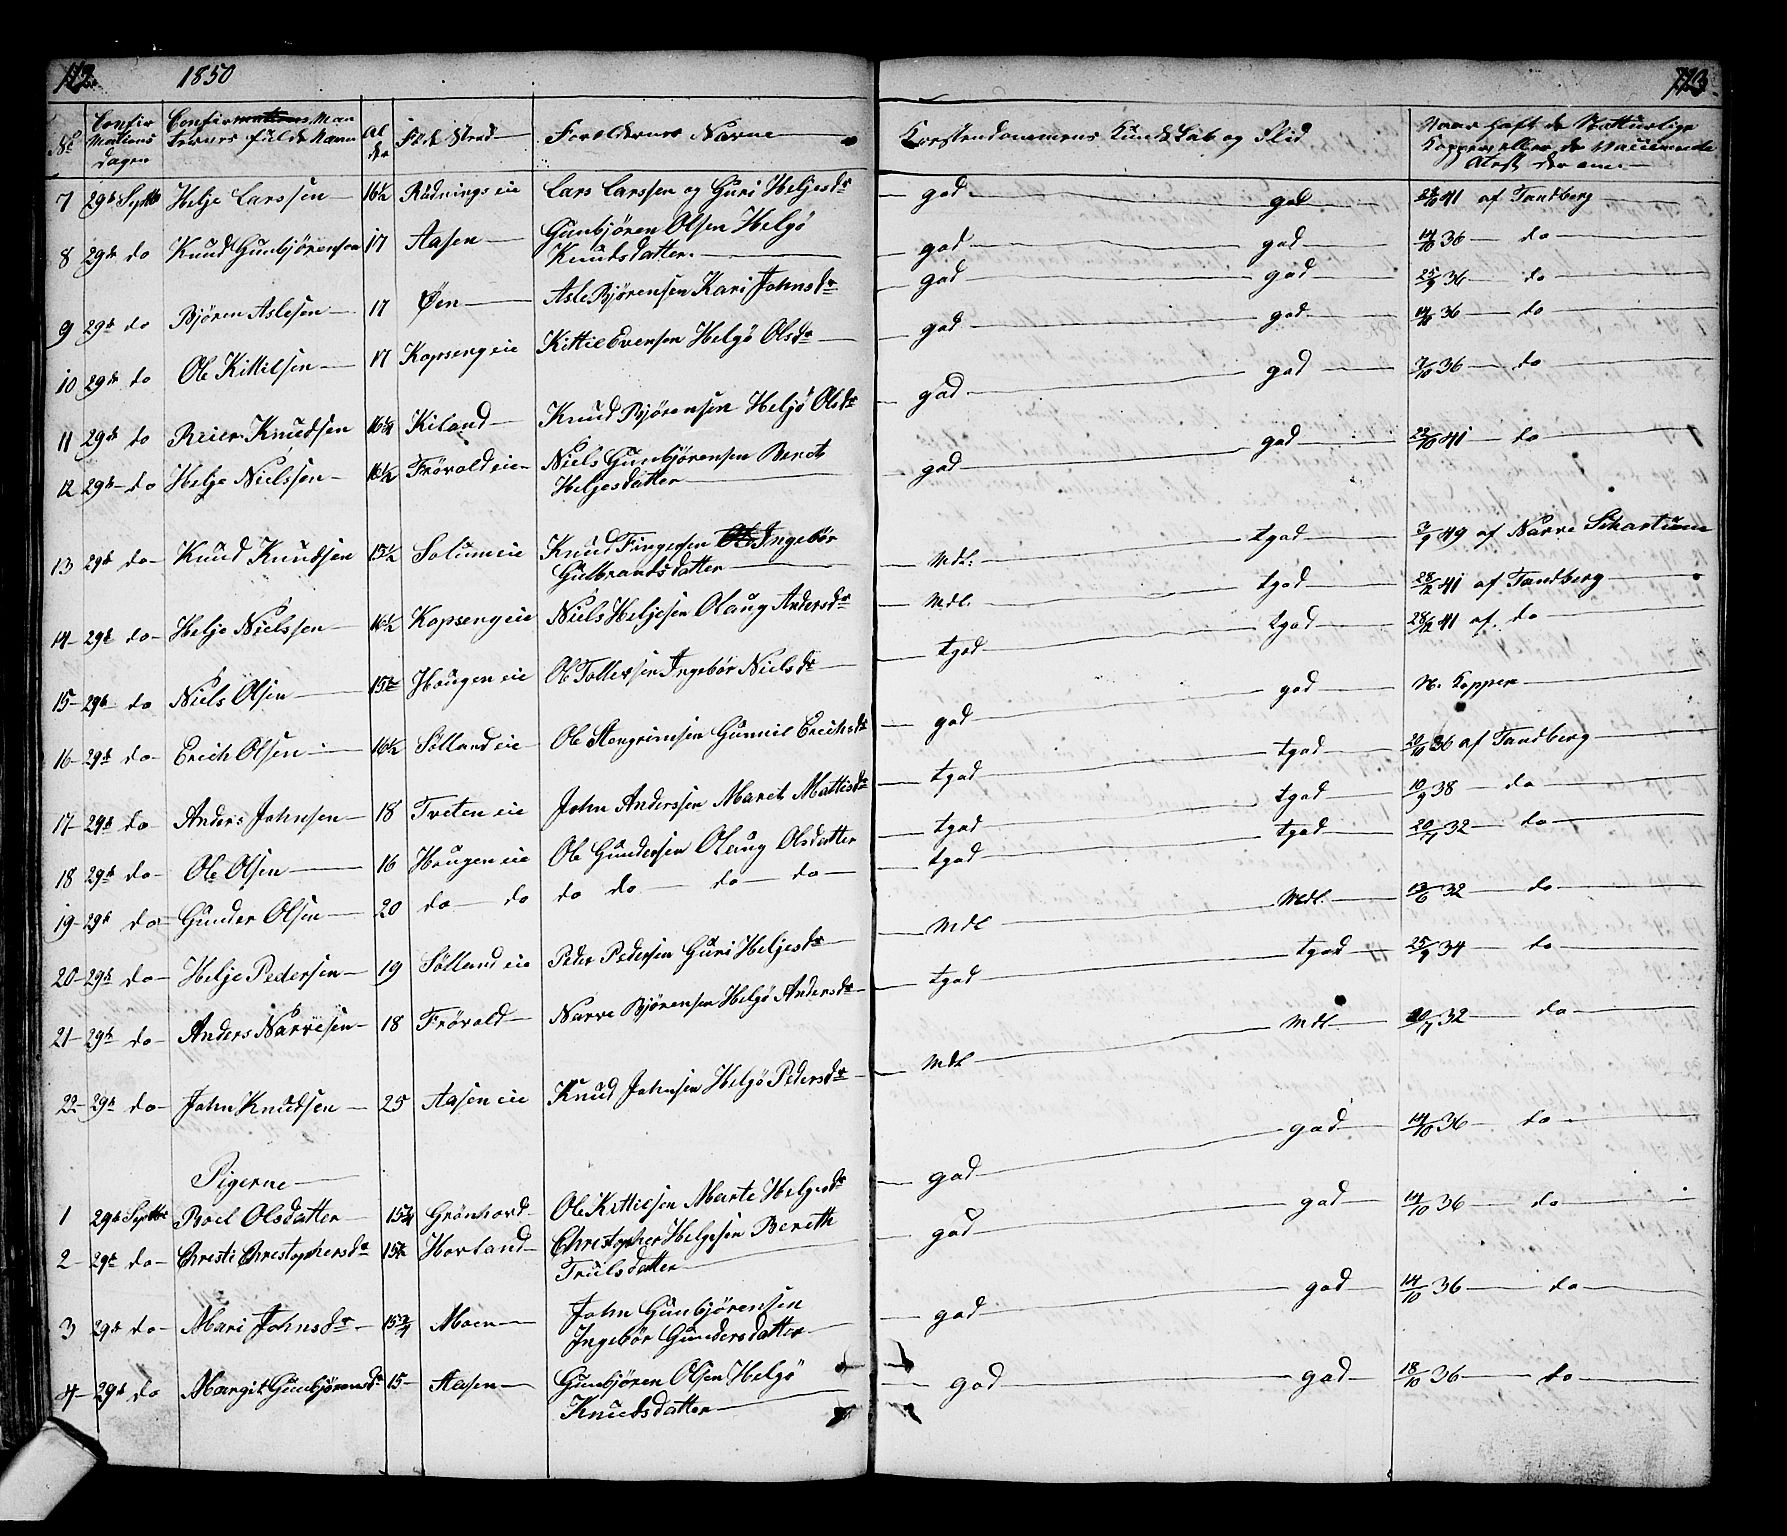 112. 1850 113.
No Confirmations dagen Confirmanternes fulde Navn Alder Födestæd Foreldrenes Navne Kristendommens Kundskab og Flid Naar haft de Naturlige Kopper eller de Vaccinerede
7 29de Septbr Helje Larssen 16½ Rudnings eie Lars Larssen og Guri Heljesdr god god 41 af Tandberg
8 29de do Knud Gunbjörensen 17 Aasen Gunbjören Olsen Helgö Knudsdatter. god god 14/10 36 do
9 29de do Björen Aslesen 17 Øen Asle Björensen Kari Johnsdr god god 25/9 36 do
10 29de do Ole Kittilsen 17 Kopseng eie Kittil Evensen Helgö Olsdr god god 14/10 36 do
11 29de do Reier Knudsen 16¾ Kiland Knud Björensen Heljö Olsdr god god 7/10 36 do
12 29de do Helje Nielssen 16½ Frövold eie Niels Gunbjörensen Berit Heljesdatter god god 22/10 41 do
13 29de do Knud Knudsen 15½ Solum eie Knud Fingersen Ingebör Gulbrandsdatter Mdl. tgod 3/9 49 af Narve Sikartuun
14 29de do Helje Nielssen 16½ Kopseng eie Niels Heljesen Olaug Andersdr Mdl. tgod 41 af Tandberg
15 29de do Niels Olsen 15½ Haugen eie Ole Tollevsen Ingebör Nielsdr tgod tgod 41 af. do
16 29de do Erich Olsen 16½ Sølland eie Ole Stengrimsen Gunnil Erichsdr god god N. Kopper
17 29de do Anders Johnsen 18 Tveten eie John Anderssen Marit Mattisdr tgod tgod 20/10 36 af Tandberg
18 29de do Ole Olsen 16 Haugen eie Ole Gundersen Olaug Olsdatter tgod tgod 10/9 38 do
19 29de do Gunder Olsen 20 do do do do do do tgod tgod 32 do
20 29de do Helje Pedersen 19 Sølland eie Peder Pedersen Guri Heljesdr Mdl Mdl. 13/6 32 do
21 29de do Anders Narvesen 18 Frövold Narve Björensen Helgö Andersdr tgod tgod 25/9 34 do
22 29de do John Knudsen 25 Aasen eie Knud Johnsen Helgö Pedersdr Mdl Mdl 32 do
Pigerne
1 29de Septbr Roel Olsdatter 15¾ Grönhovd Ole Kittilsen Marte Helgesdr god god 14/10 36 do
2 29de do Christi Christophersdr 15½ Hovland Christopher Helgesen Bereth Trulsdatter god god 14/10 36 do
3 29de do Mari Johnsdr 15¾ Moen John Gunbjörensen Ingebör Gundersdatter god god 14/10 36 do
4 29de do Margit Gunbjörensdr 15 Aasen Gunbjören Olsen Helgö Knudsdatter god god 18/10 36 do